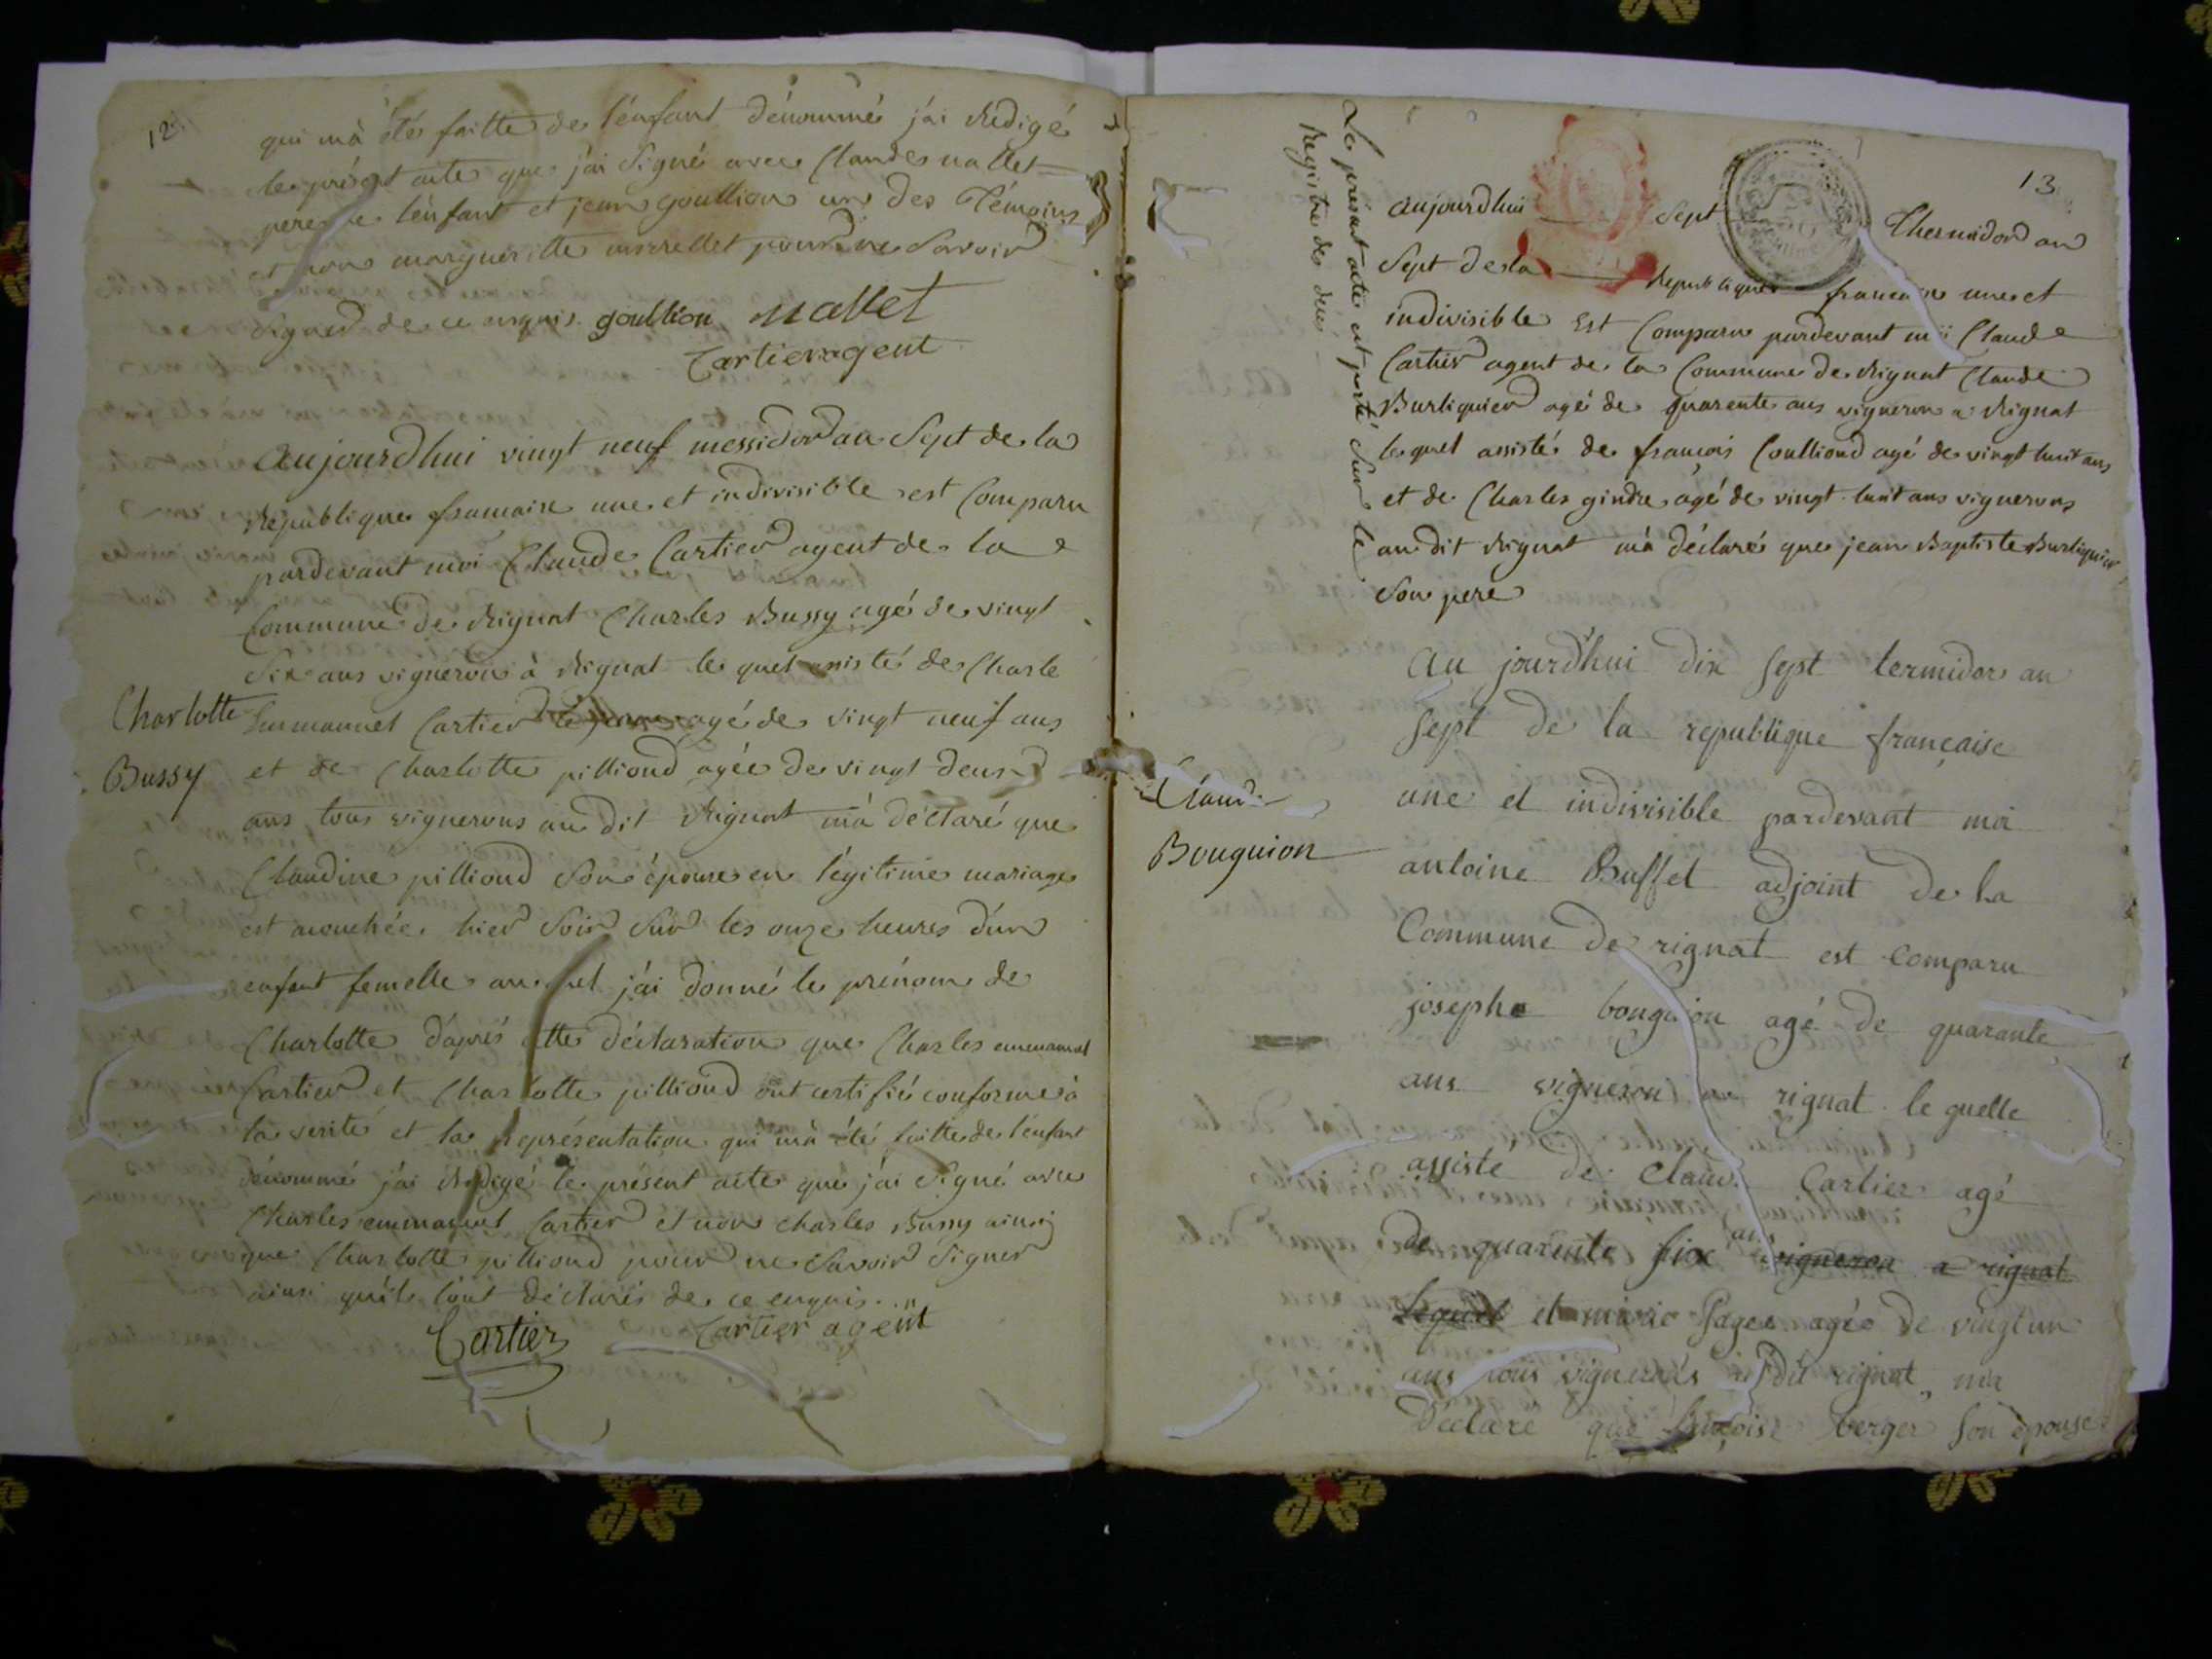 12
qui mà été faitte de l'énfant dénommé j'ai rédigé
le présent acte que j'ai signé avec Claude nallet
pere de l'énfant et jean goullion un des témoins
et non margueritte pour ne savoir
signer de ce enquis. goullion Nallet
Cartier agent
Aujourdhui vingt neuf messidor an sept de la
république francaise une et indivisible est comparu
pardevant moi Claude Cartier agent de la
Commune de Rignat Charles Bussy agé de vingt
six ans vigneron à Rignat le quel assisté de Charle
Charlotte
Bussy
Emmanuel Cartier agé de vingt neuf ans
et de Charlotte pilliond agée de vingt deux
ans tous vignerons au dit Rignat mà déclaré que
Claudine pilliond son épouse en légitime mariage
est acouchée hier soir sur les onze heures d'un
enfant femelle au quel j'ai donné le prénom de
Charlotte d'aprés cette déclaration que Charles emmanuel
Cartier et Charlotte pilliond ont certifié conforme à
la verité et la représentation qui mà été faitte de l'énfant
dénommé j'ai rédigé le présent acte que j'ai signé avec
Charles emmanuel Cartier et non charles Bussy ainsi
que Charlotte pilliond pour ne savoir signer
ainsi qu'ils l'ont déclarés de ce enquis..
Cartier Cartier agent
13
Le présent acte est porté sur le
Registre des décés
Aujourdhui sept Thermidor an
sept de la Republique francaise une et
indivisible Est comparu pardevant moi Claude
Cartier agent de la Commune de Rignat Claude
Burliquier agé de quarente ans vigneron a Rignat
le quel assisté de françois Coulliond agé de vingt huit ans
et de Charles gindre agé de vingt huit ans vignerons
au dit Rignat mà déclaré que jean Baptiste Burliquier
son pere
Au jourd'hui dix sept termidor an
sept de la republique française
Claude
Bouguion
une et indivisible pardevant moi
antoine Buffet adjoint de la
Commune de rignat est comparu
josephe bouguion agé de quarante
ans vigneron a rignat le quelle
assisté de claude Cartier agé
de quarante six ans vigneron a rignat
lequel et marie agée de vingt un
ans tous vignerons au dit rignat, ma
Déclaré que françoise berger son épouse